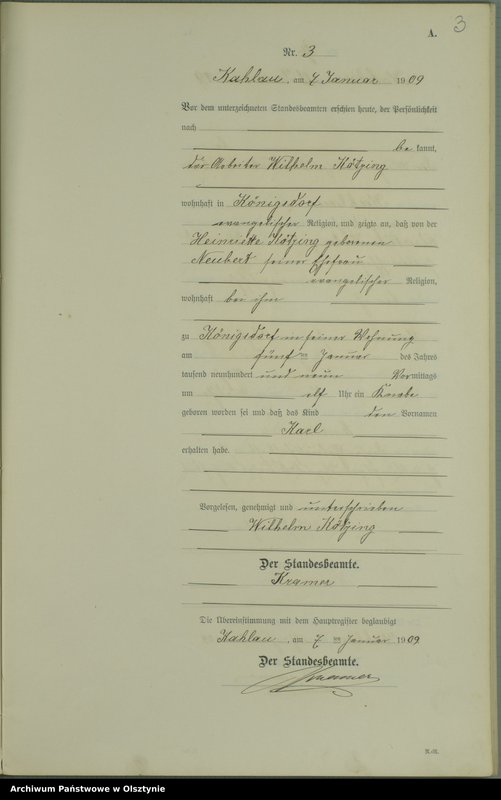 A.
3
Nr. 3
Kahlau, am 7 Januar 1909
Vor dem unterzeichneten Standesbeamten erschien heute, der Persönlichkeit
nach
be kannt,
der Arbeiter Wilhelm Kötzing
wohnhaft in Königsdorf
evangelischer Religion, und zeigte an, daß von der
Heinriette Kötzing geborenen
Neubert seiner Ehefrau
evangelischer Religion,
wohnhaft bei ihm
zu Königsdorf in seiner Wohnung
am fünf ten Januar des Jahres
tausend neunhundert und neun Vormittags
um elf Uhr ein Knabe
geboren worden sei und daß das Kind den Vornamen
Karl
erhalten habe.
Vorgelesen, genehmigt und unterschrieben
Wilhelm Kötzing
Der Standesbeamte.
Kramer
Die Übereinstimmung mit dem Hauptregister beglaubigt
Kahlau, am 7 ten Januar 1909
Der Standesbeamte.
Kramer
Archiwum Państwowe w Olsztynie